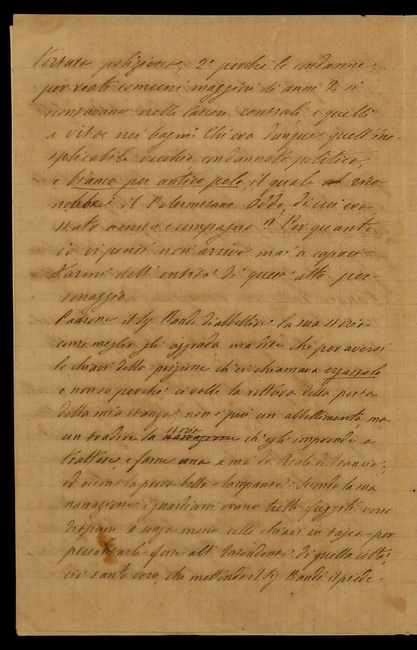 portato poliziono, 2° perchè le condanne
per reati comuni maggiori di anni 2 si
scontavano nelle Case centrali e quelle
a vita nei bagni. Chi era dunque quell'ine
splicabile vecchio condannato politico
e bianco per antico pelo il quale
il Palermitano Oddo, di cui era
stato amico e compagno? Per quanto
io vi pensi non arrivo mai a capaci
tarmi dell'entità di questo alto per
sonaggio
Padrone il Sig Bandi d'abbellire la sua storia
come meglio gli aggrada ma dire che per aversi
le chiavi delle prigione ch'ei chiamava ergastolo
e non so perchè ci volle la rottura della porta
della mia stanza non è più un abbellimento, ma
un tradire la storia ch'egli imprende a
trattare, e farne una a mo' de Reali di Francia,
ed eccone la prova bella e lampante. Secondo la sua
narrazione i guardiani erano tutti fuggiti verso
Trapani e senza meno colle chiavi in tasca per
presentarle forse all'Intendente di quella città;
ciò è tanto vero, che mettendo il Sig Bandi il piede